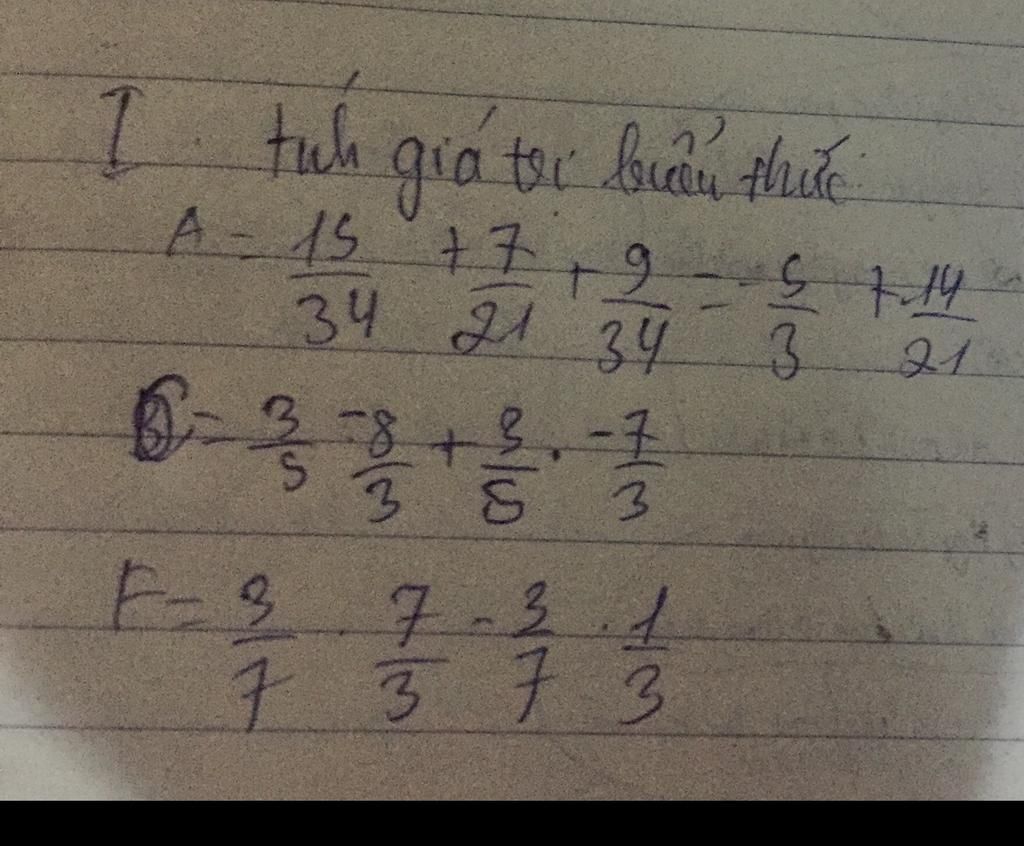 I. tính giá trị biểu thức.
A = 15/34 + 7/21 + 9/34 = - 5/3 + 14/21
C = 3/5 -8/3 + 3/5 . -7/3
F = 3/7 . 7/3 - 3/7 . 1/3